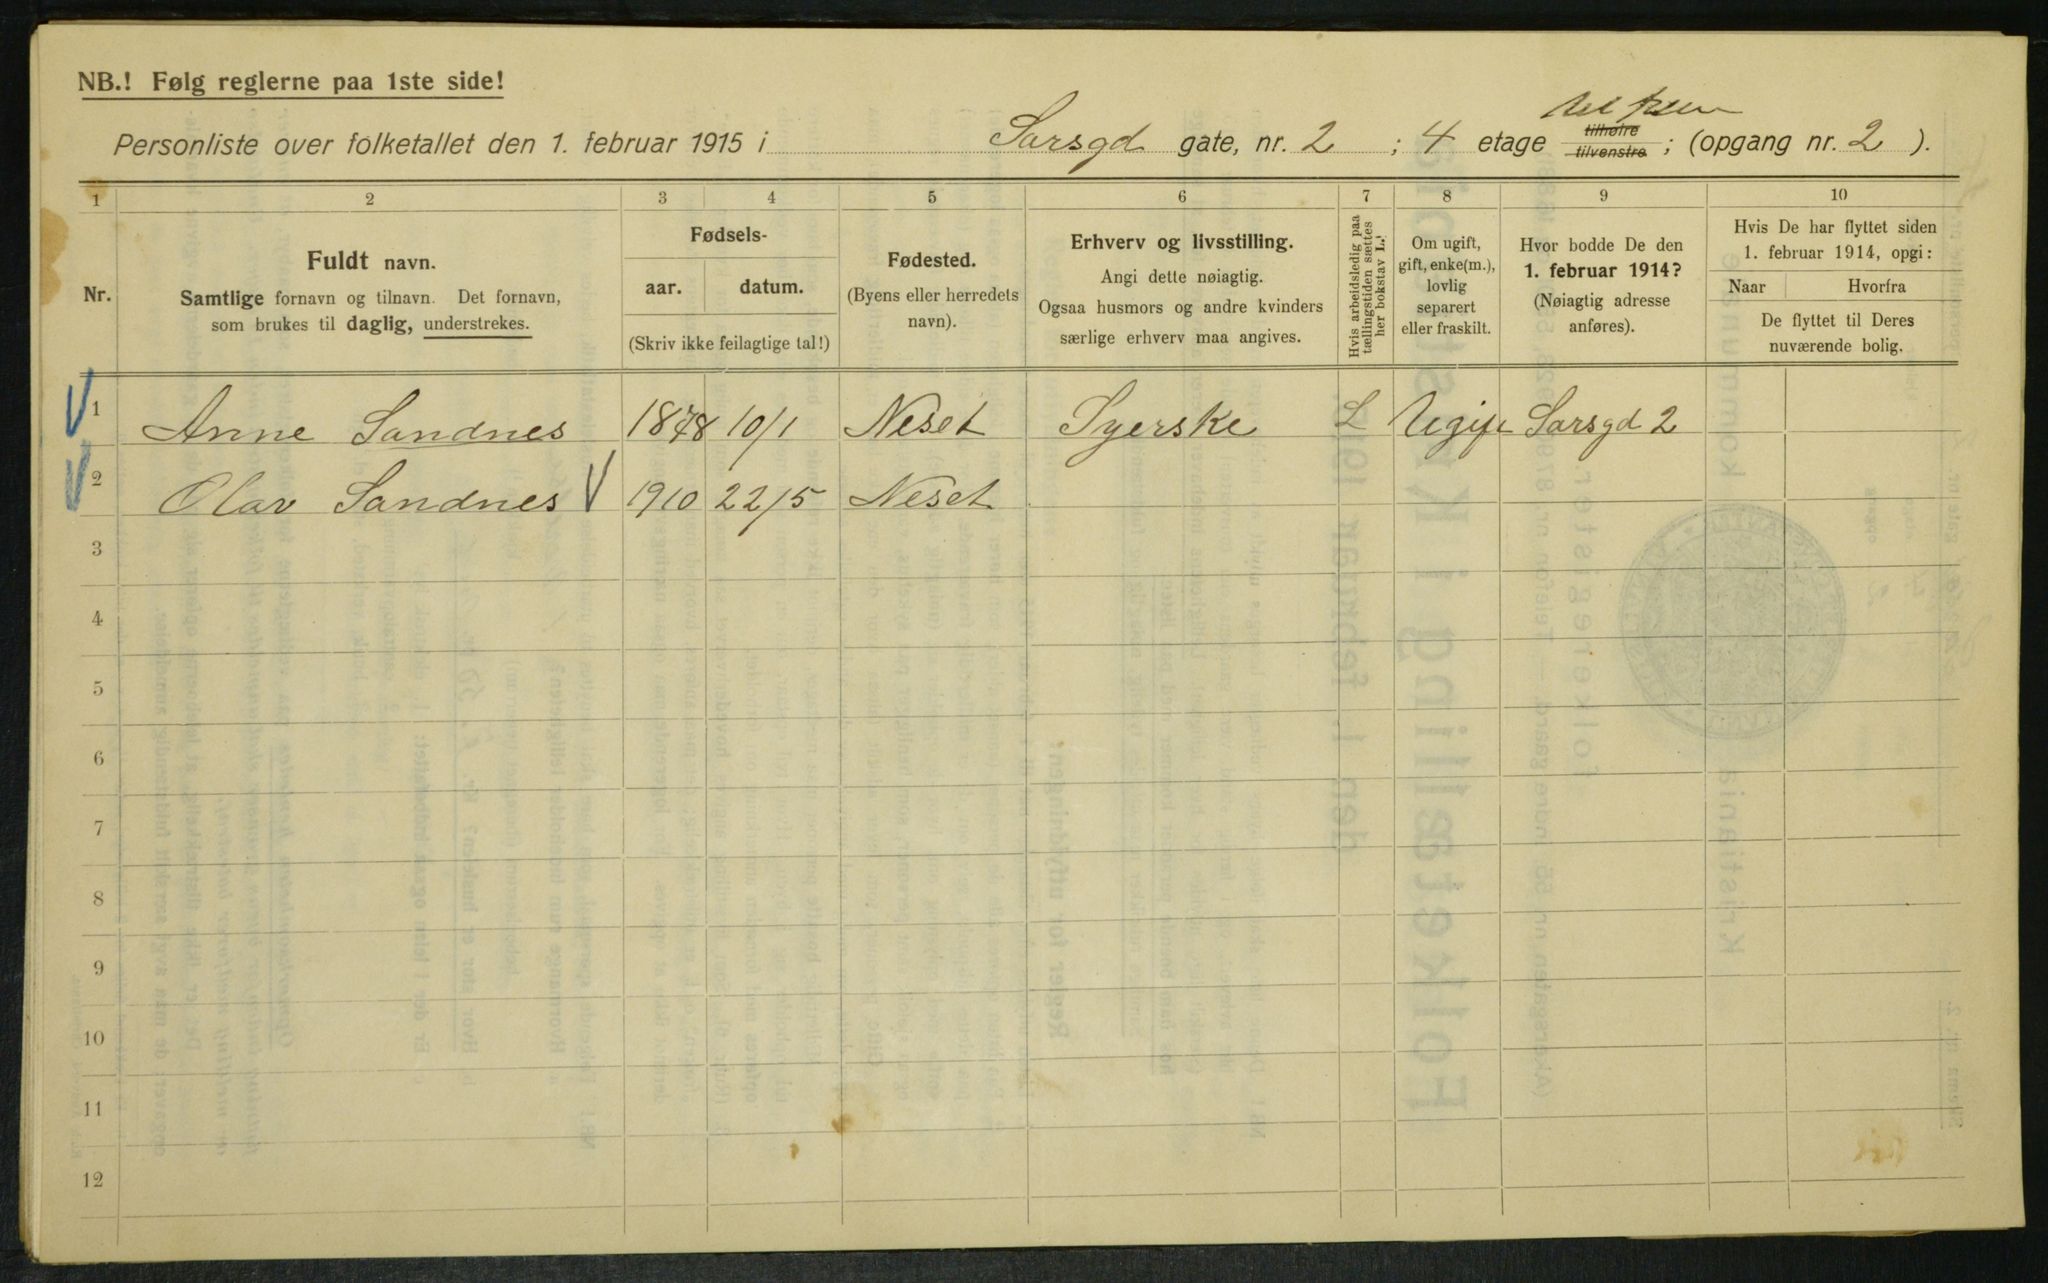 NB.! Følg reglerne paa 1ste side!
Personliste over folketallet den 1. februar 1915 i Sarsgd gate, nr. 2 ; 4 etage tilhøire tilvenstre ; (opgang nr. 2 ).
1 2 3 4 5 6 7 8 9 10
Nr.
Fuldt navn.
Samtlige fornavn og tilnavn. Det fornavn,
som brukes til daglig, understrekes.
Fødsels-
aar. datum.
(Skriv ikke feilagtige tal!)
Fødested.
(Byens eller herredets
navn).
Erhverv og livsstilling.
Angi dette nøiagtig.
Ogsaa husmors og andre kvinders
særlige erhverv maa angives.
Hvis arbeidsledig paa
tællingstiden sættes
her bokstav L.
Om ugift,
gift, enke(m.),
lovlig
separert
eller fraskilt.
Hvor bodde De den
1. februar 1914?
(Nøiagtig adresse
anføres).
Hvis De har flyttet siden
1. februar 1914, opgi:
Naar Hvorfra
De flyttet til Deres
nuværende bolig.
1 Anne Sandnes 1878 10/1 Neset Syerske L Ugift Sarsgd 2
2 Olav Sandnes 1910 22/5 Neset
3
4
5
6
7
8
9
10
11
12